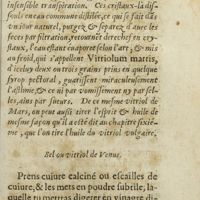 insensible transpiration. Ces cristaux-là dis-
souls en eau commune distillée, ce qui se fait dás
vn pot naturel, purgez & separez d'auec les
feces par filtration, retournét derechef en cry-
staux, l'eau estant euaporée selon l'art, & mis
au froid, qui s'appellent Vitriolum martis,
d'iceluy deux ou trois grains pris en quelque
syrop pectoral, guarissent miraculeusement
l'asthme, & ce ni par vomissement ny par sel-
les, ains par sueurs. De ce mesme vitriol de
Mars, on peut aussi tirer l'esprit & huile de
mesme façon qu'il a esté dit au chapitre sixié-
me, que l'on tire l'huile du vitriol vulgaire.
Sel ou vitriol de Venus.
Prens cuiure calciné ou escailles de
cuiure, & les mets en poudre subtile, la-
quelle tu mettras digerer en vinaigre di-